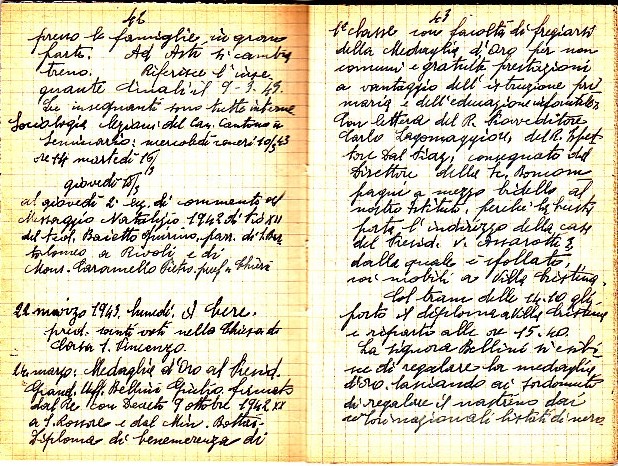 42
presso le famiglie in gran
parte. Ad Asti si cambia
treno. Riferisce l'inse-
gnante Cinali il 9-3-43.
Le insegnanti sono tutte interne
Sociologia del Can. Cantono in
Seminario: mercoledì 10/3/43
ore 14 martedì 16/3
giovedì 18/3
al giovedì 2ª di commento del
Messaggio Natalizio 1942 di Pio XII
del Teol. Baietto parr. di S. Bar-
tolomeo a Rivoli e di
Mons. Caramello Pietro, prof. a Chieri
22 marzo 1943. Lunedì. A Cere,
pred. santi voti nella Chiesa di
Casa S. Vincenzo.
24 marzo: Medaglia d'Oro al Presid.
Grand. Uff. Bellini Giulio, firmato
dal Re con Decreto 9 ottobre 1942 XX
a S. Rossore e dal Min. Bottai.
Diploma di benemerenza di
43
1ª classe con facoltà di fregiarsi
della Medaglia d'Oro per non
comuni e gratuite prestazioni
a vantaggio dell'istruzione pri
maria e dell'educazione infantile.
Con lettera del R. Provveditore
Carlo Lagomaggiore, del R. Ispet
tore Dal Piaz; consegnato dal
Direttore della
a mezzo bidello al
nostro Istituto, perché la busta
porta l'indirizzo della casa
del Presid. v. Assarotti 3
dalla quale è sfollato,
coi mobili a Villa Cristina.
Col tram delle 14.10 gli
porto il diploma a Villa Cristina
e riparto alle ore 15.40.
La signora Bellini si esibi-
ne di regalare la medaglia
d'oro, lasciando ai sordomuti
di regalare il nastrino dai
colori nazionali listati di nero